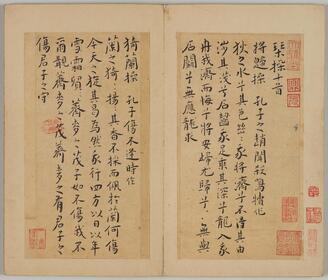 琴操十首
將歸操 孔子之趙聞殺鳴犢作
狄之水兮其色幽〻我將濟兮不得其由
涉其淺兮石齧我足乘其深兮龍入我
舟我濟而悔兮將安歸尤歸兮〻無與
石鬪兮無應龍求
猗蘭操 孔子傷不逢時作
蘭之猗〻揚〻其香不採而佩於蘭何傷
今天之旋其曷為然我行四方以日以年
雪霜貿〻薺麥之茂子如不傷我不
爾覯薺麥之茂薺麥之有君子之
傷君子之守